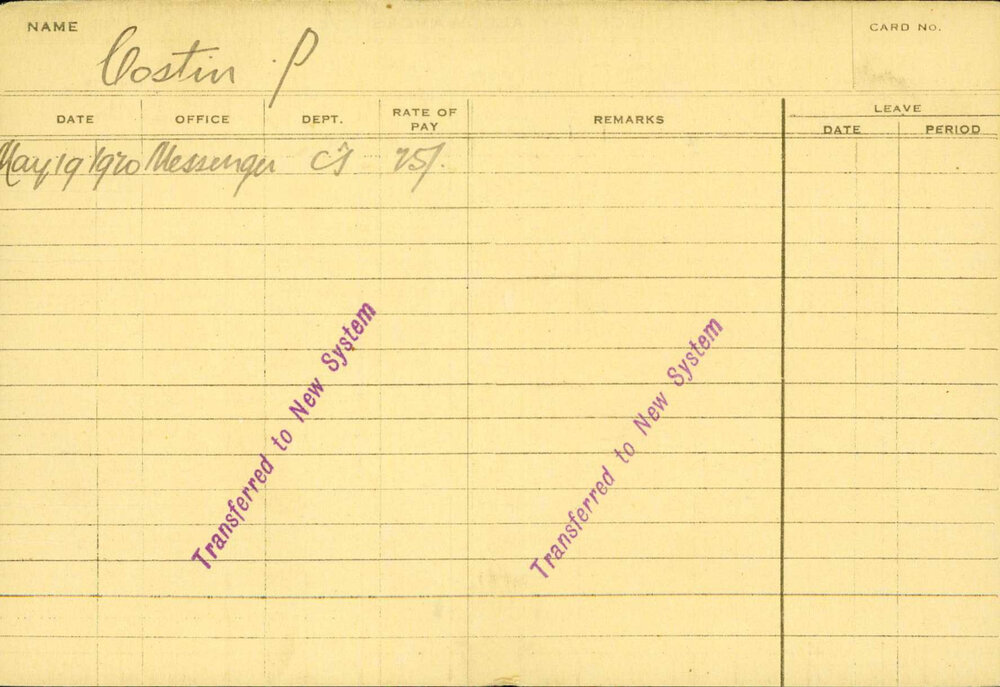 NAME
Costin P
CARD No.
DATE OFFICE DEPT. RATE OF PAY REMARKS LEAVE
DATE PERIOD
May 19 1920 Messenger 25/.
Transferred to New System
Transferred to New System